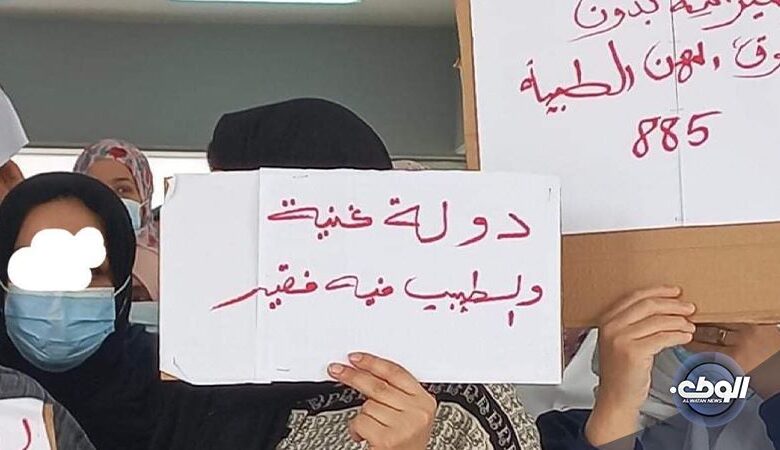 بدون
المهن الطبية
885
دولة غنية
والطبيب فيه فقير
الوطن
ALWATAN NEWS